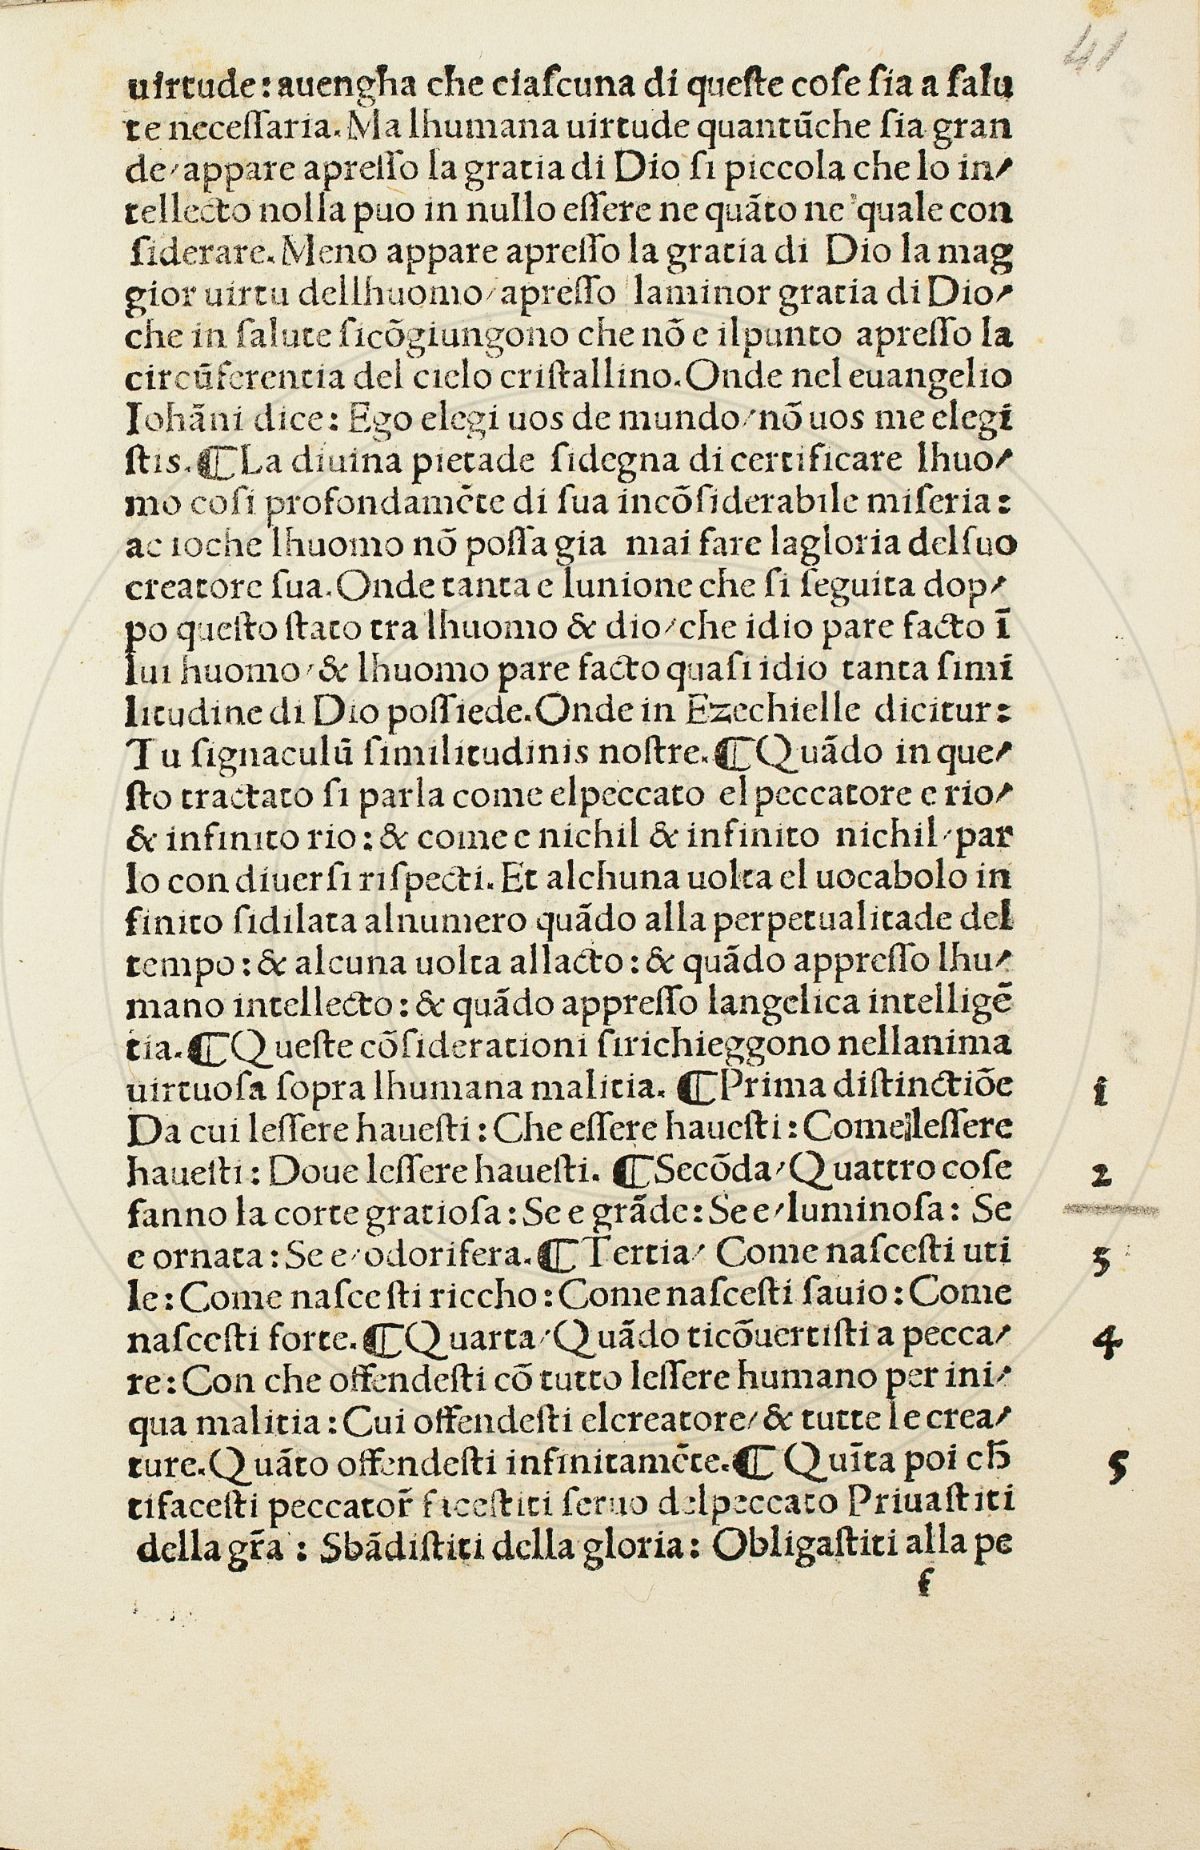 41
uirtude: auengha che ciaſcuna di queſte coſe ſia a ſalu
te neceſſaria. Ma lhumana uirtude quantũche ſia gran
de/appare apreſſo la gratia di Dio ſi piccola che lo in/
tellecto nolla puo in nullo eſſere ne quãto ne quale con
ſiderare. Meno appare apreſſo la gratia di Dio la mag
gior uirtu dellhuomo/apreſſo laminor gratia di Dio/
che in ſalute ſicõgiungono che nõ e ilpunto apreſſo la
circũferentia del cielo criſtallino. Onde nel euangelio
Iohãni dice: Ego elegi uos de mundo/nõ uos me elegi
ſtis. ¶ La diuina pietade ſidegna di certificare lhuo/
mo coſi profondamẽte di ſua incõſiderabile miſeria:
ac ioche lhuomo nõ poſſa gia mai fare lagloria delſuo
creatore ſua. Onde tanta e lunione che ſi ſeguita dop/
po queſto ſtato tra lhuomo & dio/che idio pare facto ĩ
lui huomo/& lhuomo pare facto quaſi idio tanta ſimi
litudine di Dio poſſiede. Onde in Ezechielle dicitur:
Tu ſignaculũ ſimilitudinis noſtre. ¶ Quãdo in que/
ſto tractato ſi parla come elpeccato el peccatore e rio/
& infinito rio: & come e nichil & infinito nichil/par
lo con diuerſi riſpecti. Et alchuna uolta el uocabolo in
finito ſidilata alnumero quãdo alla perpetualitade del
tempo: & alcuna uolta allacto: & quãdo appreſſo lhu/
mano intellecto: & quãdo appreſſo langelica intelligẽ
tia. ¶ Queſte cõſiderationi ſirichieggono nellanima
uirtuoſa ſopra lhumana malitia. ¶ Prima diſtinctiõe 1
Da cui leſſere haueſti: Che eſſere haueſti: Come leſſere
haueſti: Doue leſſere haueſti. ¶ Secõda/Quattro coſe 2
fanno la corte gratioſa: Se e grãde: Se e/luminoſa: Se
e ornata: Se e/odorifera. ¶ Tertia/ Come naſceſti uti 3
le: Come naſceſti riccho: Come naſceſti ſauio: Come
naſceſti forte. ¶ Quarta/Quãdo ticõuertiſti a pecca/ 4
re: Con che offendeſti cõ tutto leſſere humano per ini/
qua malitia: Cui offendeſti elcreatore/& tutte le crea/
ture. Quãto offendeſti infinitamẽte. ¶ Quĩta poi ch̃ 5
tifaceſti peccator̃ faceſtiti ſeruo delpeccato Priuaſtiti
della gr̃a: Sbãdiſtiti della gloria: Obligaſtiti alla pe
f